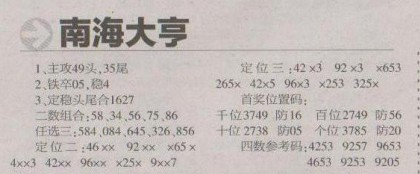 南海大亨
1、主攻49头,35尾
2、铁卒05,稳4
3、定稳头尾合1627
二数组合:58、34、56、75、86
任选三:584、084、645、326、856
定位二:46×× 92×× ×65×
4××3 42×× 96×× ×25× 9××7
定位三:42×3 92×3 ×653
265× 42×5 96×3 ×253 325×
首奖位置码:
千位3749 防16 百位2749 防56
十位2738 防05 个位3785 防20
四数参考码:4253 9257 9653
4653 9253 9205